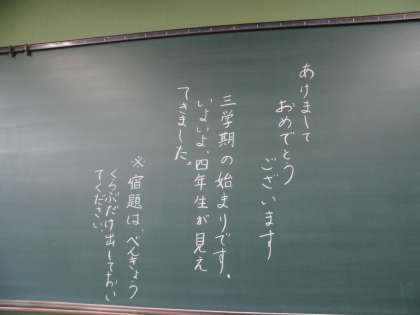 あけまして
おめでとう
ございます
三学期の始まりです。
いよいよ、四年生が見え
てきました。
※宿題は、べんきょう
くらぶだけ出しておい
てください。